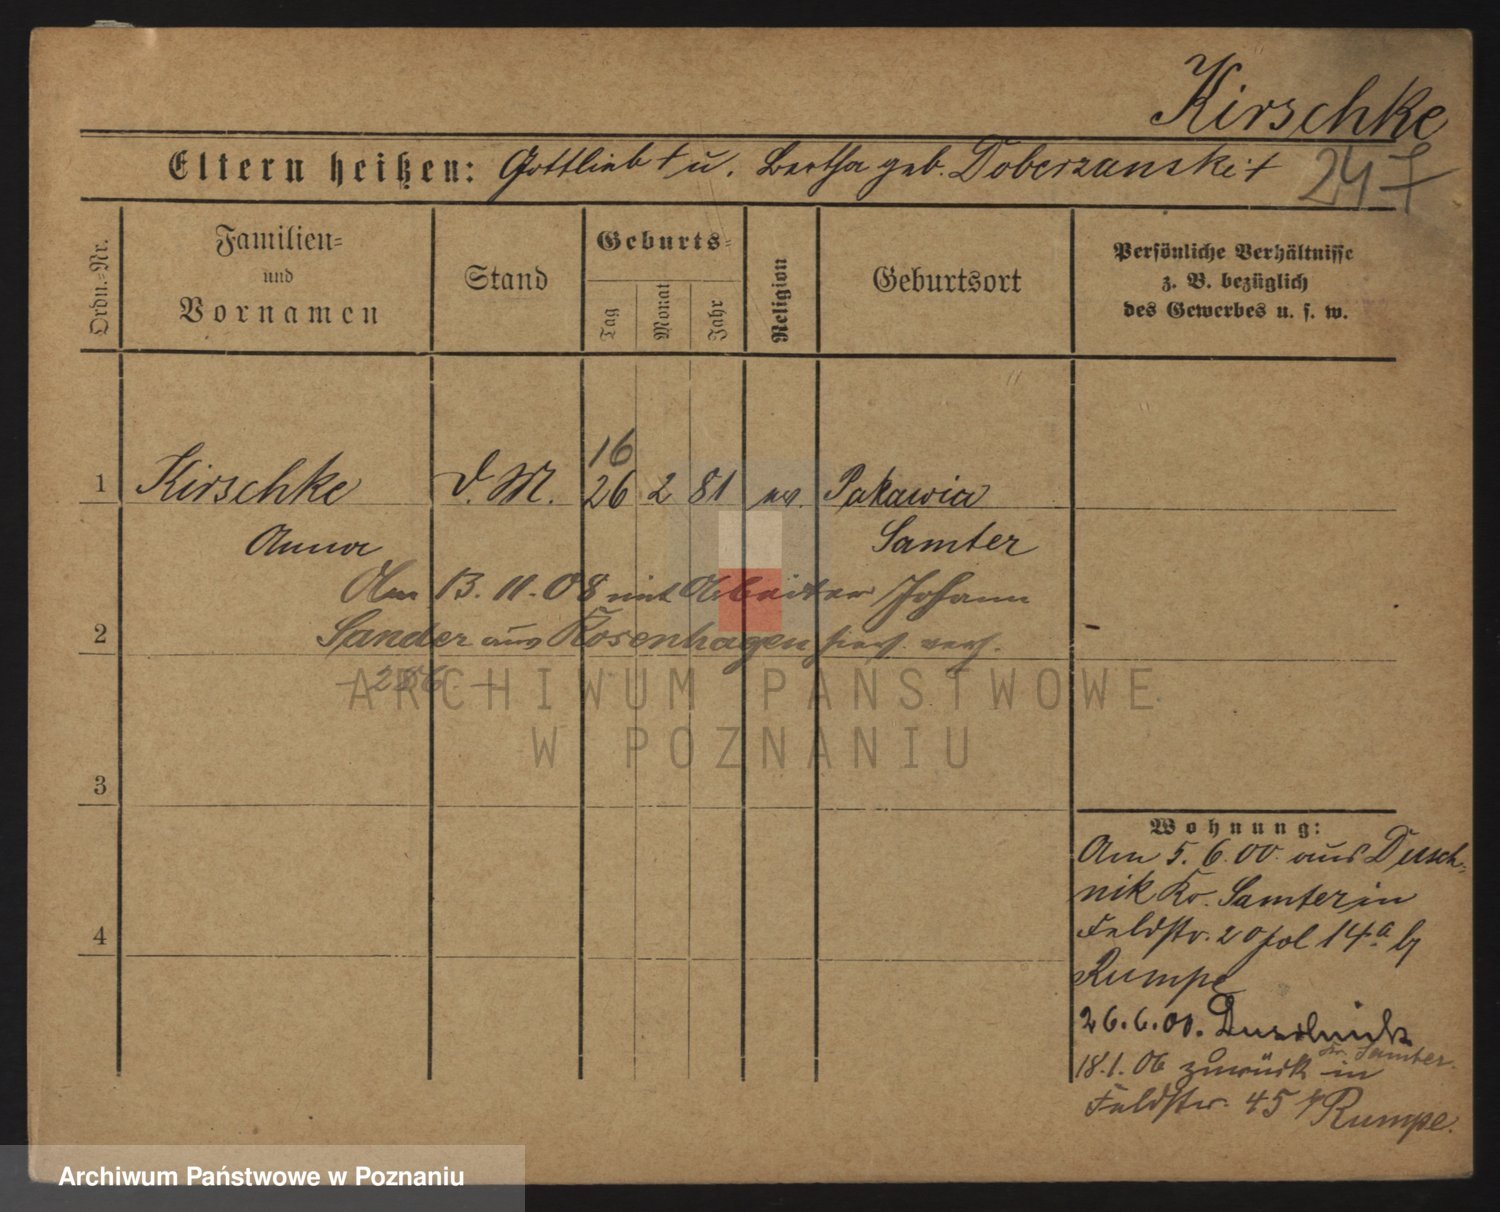 Kirschke
Eltern heißen: Gottlieb + u. Bertha geb. Doberzanski +
247
Ordn.-Nr.
Familien-
und
Vornamen
Stand
Geburts-
Tag
Monat
Jahr
Religion
Geburtsort
Persönliche Verhältnisse
z. B. bezüglich
des Gewerbes u. s. w.
16
1 Kirschke D. M. 26 2 81 ev. Pakawice
Anna Samter
Am 13.11.08 mit Arbeiter Johann
2 Sander aus Rosenhagen hier verh.
ARCHIWUM PAŃSTWOWE
W POZNANIU
3
4
Wohnung:
Am 5.6.00 aus Dusch-
nik Kr. Samter in
Feldstr. 20 Jol 14a b/
Rumpe
26.6.00. Duschnik
Kr. Samter.
18.1.06 zurück in
Feldstr. 45 b/ Rumpe.
Archiwum Państwowe w Poznaniu